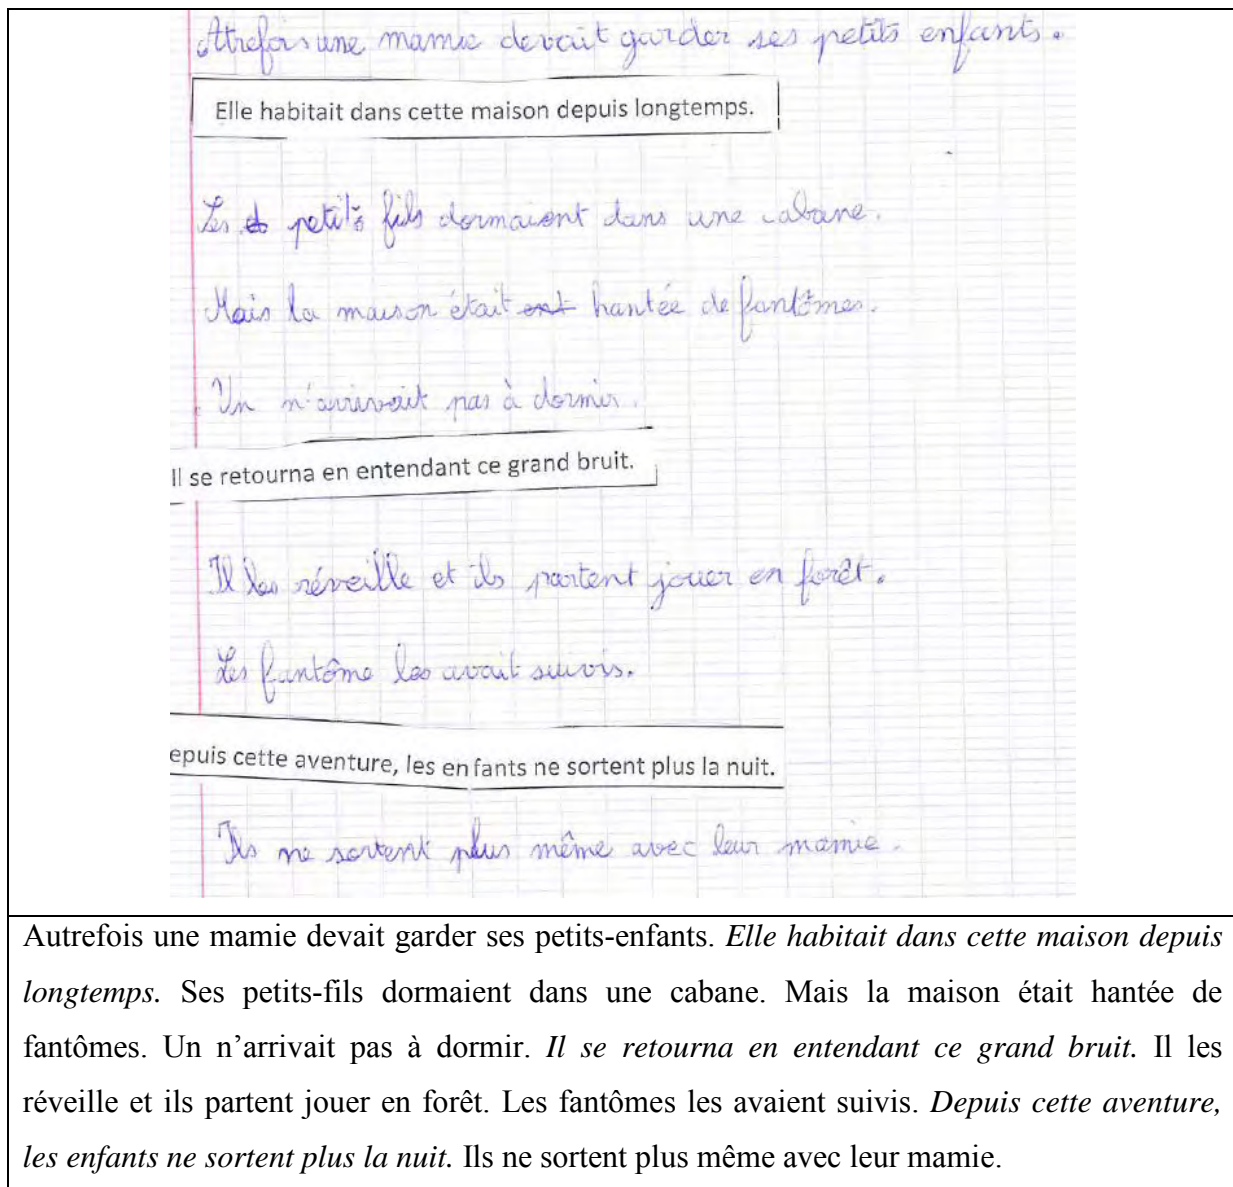 Atrefois une mamie devait garder ses petits enfants.
Elle habitait dans cette maison depuis longtemps.
Les petits fils dormaient dans une cabane.
Mais la maison était est hantée de fantômes.
Un n'arrivait pas à dormir.
Il se retourna en entendant ce grand bruit.
Il les réveille et ils partent jouer en forêt.
Les fantôme les avait suivis.
epuis cette aventure, les enfants ne sortent plus la nuit.
Ils ne sortent plus même avec leur mamie.
Autrefois une mamie devait garder ses petits-enfants. Elle habitait dans cette maison depuis
longtemps. Ses petits-fils dormaient dans une cabane. Mais la maison était hantée de
fantômes. Un n’arrivait pas à dormir. Il se retourna en entendant ce grand bruit. Il les
réveille et ils partent jouer en forêt. Les fantômes les avaient suivis. Depuis cette aventure,
les enfants ne sortent plus la nuit. Ils ne sortent plus même avec leur mamie.